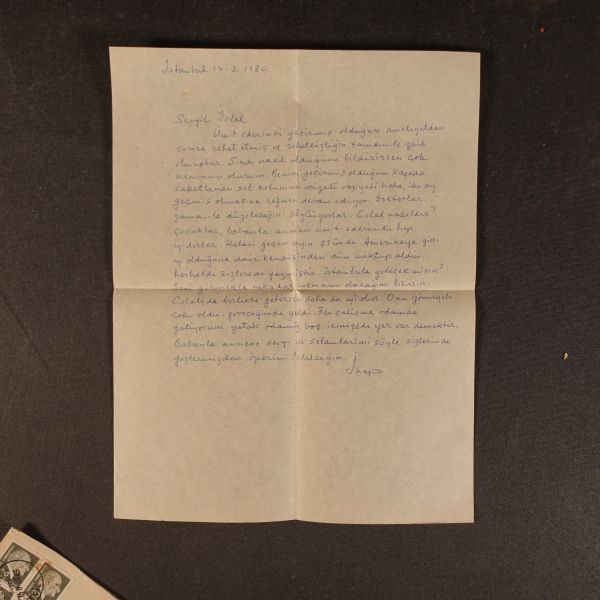 İstanbul 14-2-1980
Sevgili İclal
Ümit ederimki geçirmiş olduğun ameliyetden
sonra rahat etmiş ve rahatsızlığın tamamile zail
olmuştur. Şimdi nasıl olduğunu bildirirsen çok
memnun olurum. Benim geçirmiş olduğum kazada
sakatlanan sol kolumun arızalı vaziyeti hala iki ay
geçmiş olmasına rağmen devam ediyor. Doktorlar
zamanla düzeleceğini söylüyorlar. Celal nasıldır?
Çocuklar, babanla annen ümit ederimki hep
iyidirler. Halan geçen ayın 23ünde Amerikaya gitti
iyi olduğuna dair kendisinden dün mektup aldım
herhalde sizlerede yazmıştır. İstanbula gelecek misin?
Seni görmekle nekadar memnun olacağımı bilirsin.
Celalide birlikte getirsen daha da iyi olur. Onu görmeyeli
çok oldu, göreceğimde geldi. Ben çalışma odamda
yatıyorum, yatak odamız boş, ikinizede yer var demektir.
Babanla annene sevgi ve selamlarımı söyle, sizlerinde
gözlerinizden öperim İclalciğim.